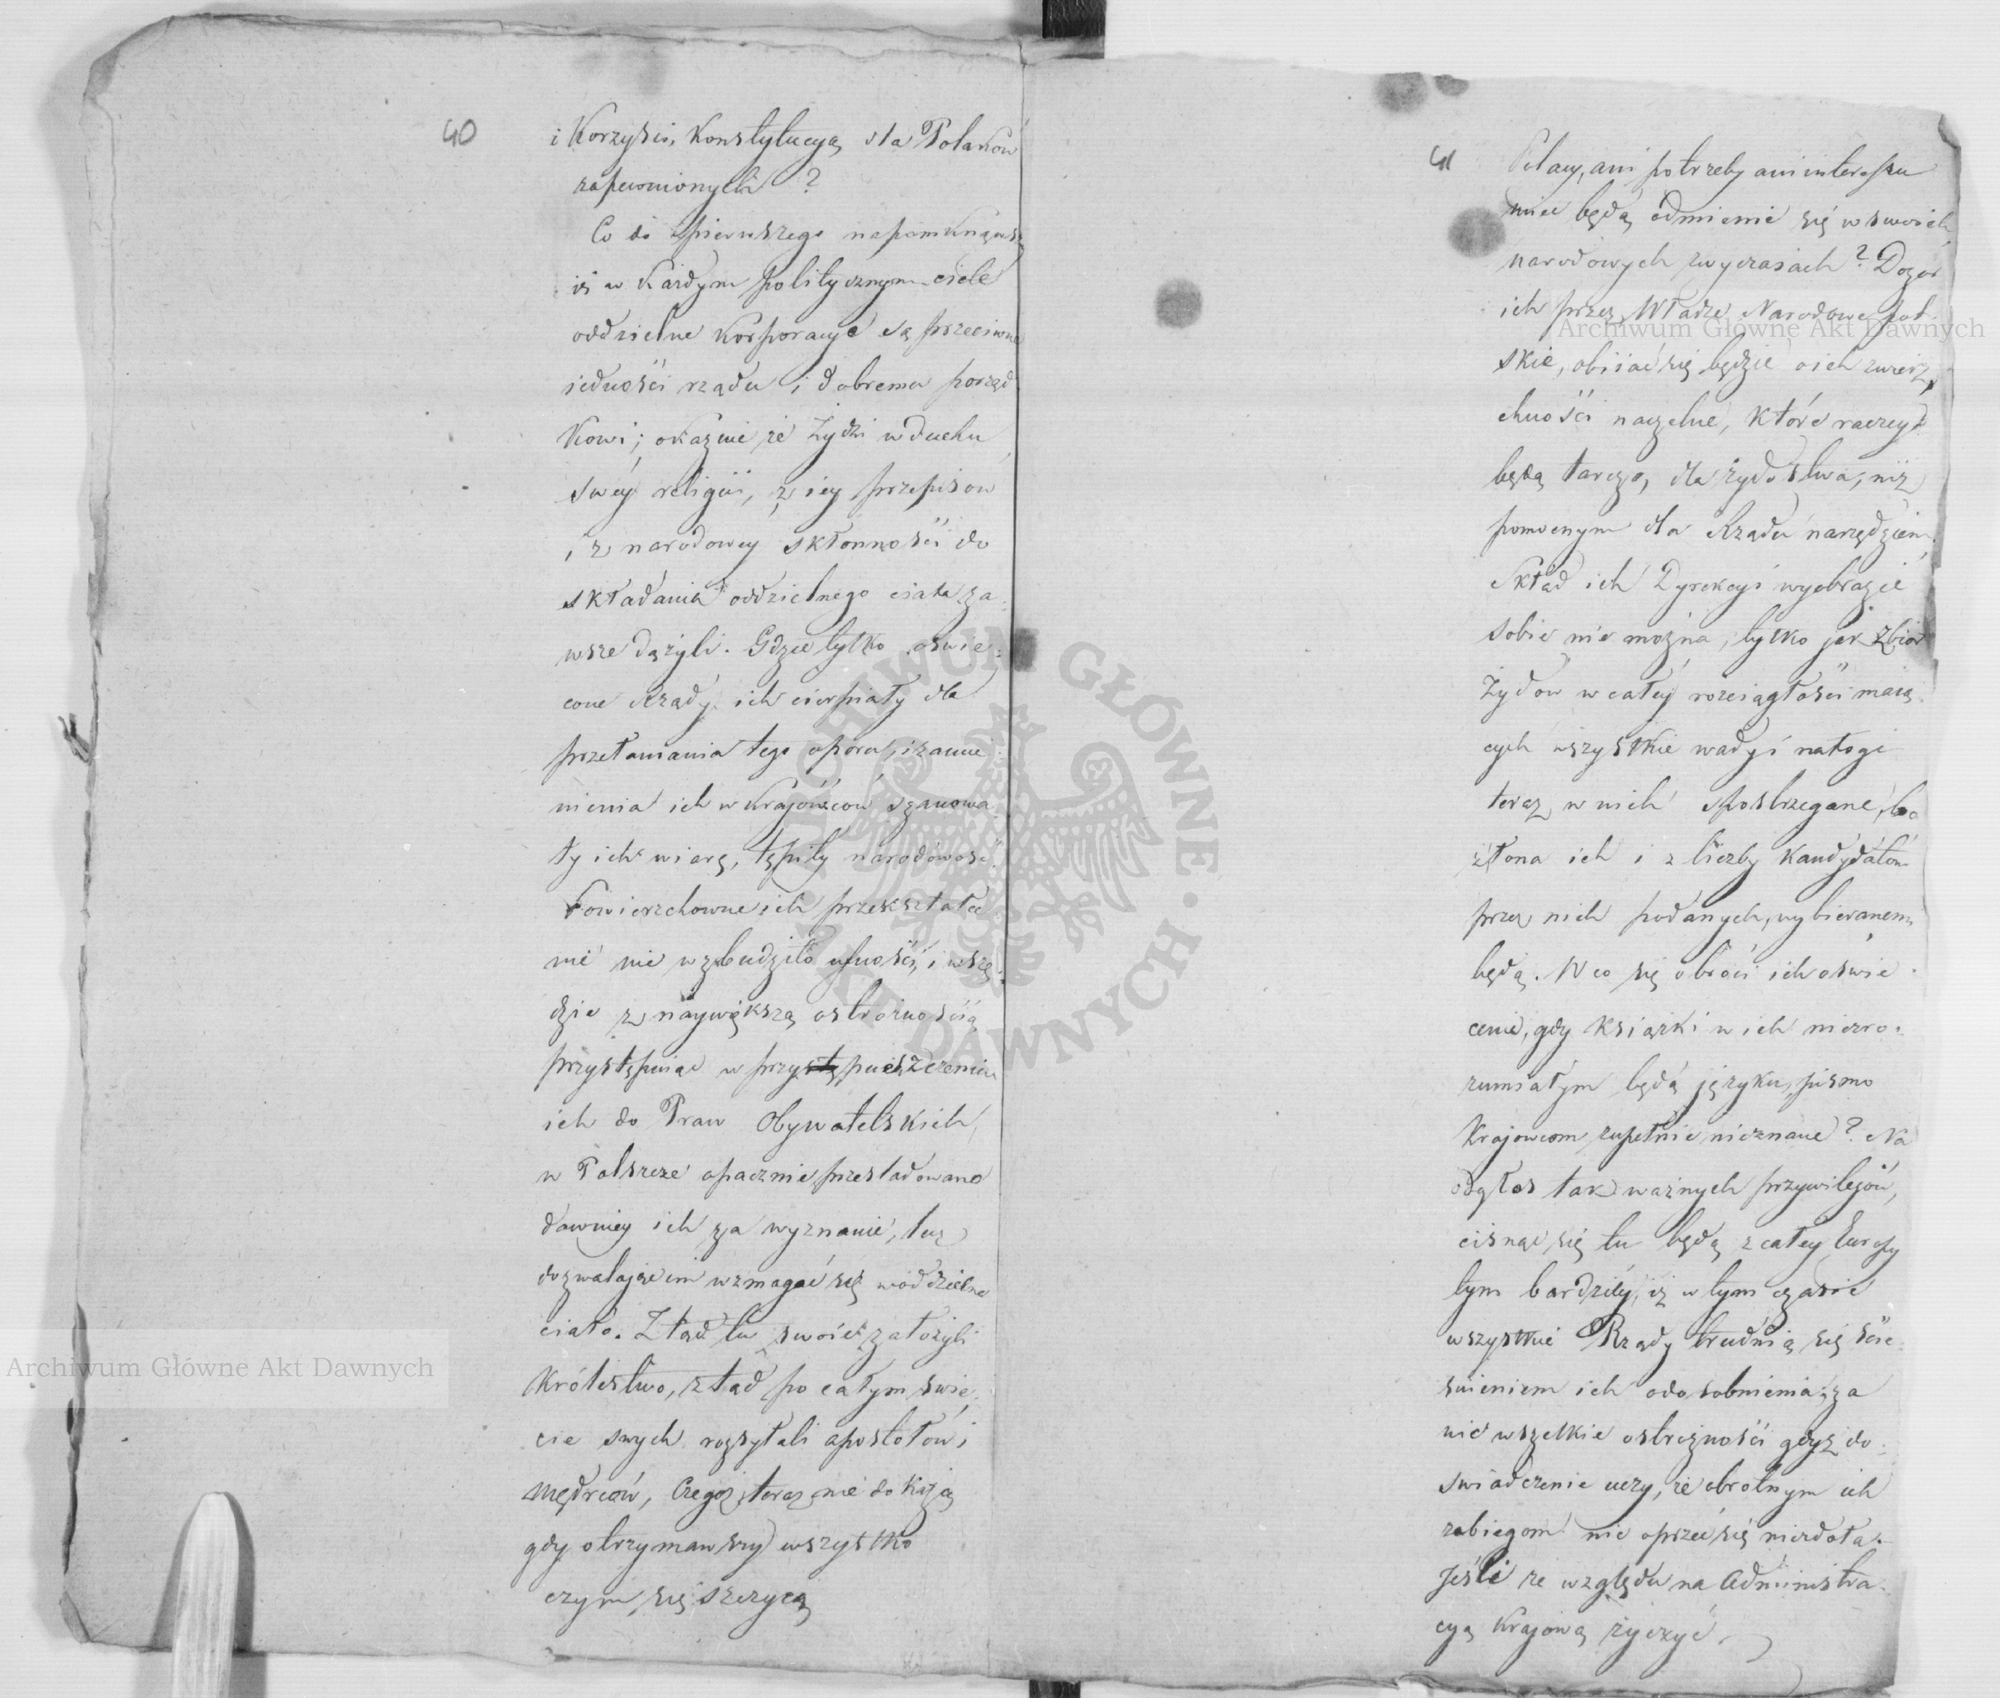 40
i Korzyści, Konstytucyą dla Polaków
zapewnionych?
Co do pierwszego napomknąwszy
iż w Każdym politycznym ciele
oddzielne Korporacye są przeciwne
iedności rządu i dobremu porząd
Kowi; okazuie że Żydzi w duchu
swéy religii, z iey przepisów
i z narodowey skłonności do
składania oddzielnego ciała za-
wsze dążyli. Gdzie tylko oświe-
cone Rządy ich cierpiały dla
przełamania tego oporu, i zamie
nienia ich w Krajowców szanowa
ły ich wiarę, tępiły narodowość
Powierzchowne ich przekształce
nie nie wzbudziło ufności, i wszę-
dzie z naywiększą ostrożnością
przystępuiąc w przypuszczeniu
ich do Praw Obywatelskich,
w Polszcze opacznie prześladowano
dawniey ich za wyznanie, tuż
dozwalając im wzmagać się w oddzielne
ciało. Ztąd tu swoie założyli
Królestwo, ztąd po całym świe-
cie swych rozsyłali apostołów i
mędrców, Czegoż teraz nie dokażą
gdy otrzymawszy wszystko
czym się szczycą
41
Polacy, ani potrzeby ani interessu
mieć będą odmienić się w swoich
narodowych zwyczaiach? Dozór
ich przez Władze Narodowe pol-
skie, obiiać się będzie o ich zwierz-
chności naczelne, które raczey
będą tarczą, dla żydostwa, niż
pomocnym dla Rządu narzędziem
Skład ich Dyrekcyi wyobrazić
sobie nie można, tylko jak zbiór
Żydów w całey rozciągłości maią-
cych wszystkie wady i nałogi
teraz w nich spostrzegane, bo
z łona ich i z liczby Kandydatów
przez nich podanych, wybieranemi
będą. W co się obróci ich oświe-
cenie, gdy Książki w ich niezro-
zumiałym będą języku, pismo
Krajowcom zupełnie nieznane? Na
odgłos tak ważnych przywilejów,
cisnąć się tu będą z całey Europy
tym bardziéy, iż w tym czasie
wszystkie Rządy trudnią się ście-
śnieniem ich odosobnienia; za
nic wszelkie ostrożności gdyż do-
świadczenie uczy, że obrotnym ich
zabiegom nic oprzeć się niezdoła.
Jeśli ze względu na Administra-
cyą Krajową życzyć
Archiwum Główne Akt Dawnych
Archiwum Główne Akt Dawnych
ARCHIWUM GŁÓWNE AKT DAWNYCH